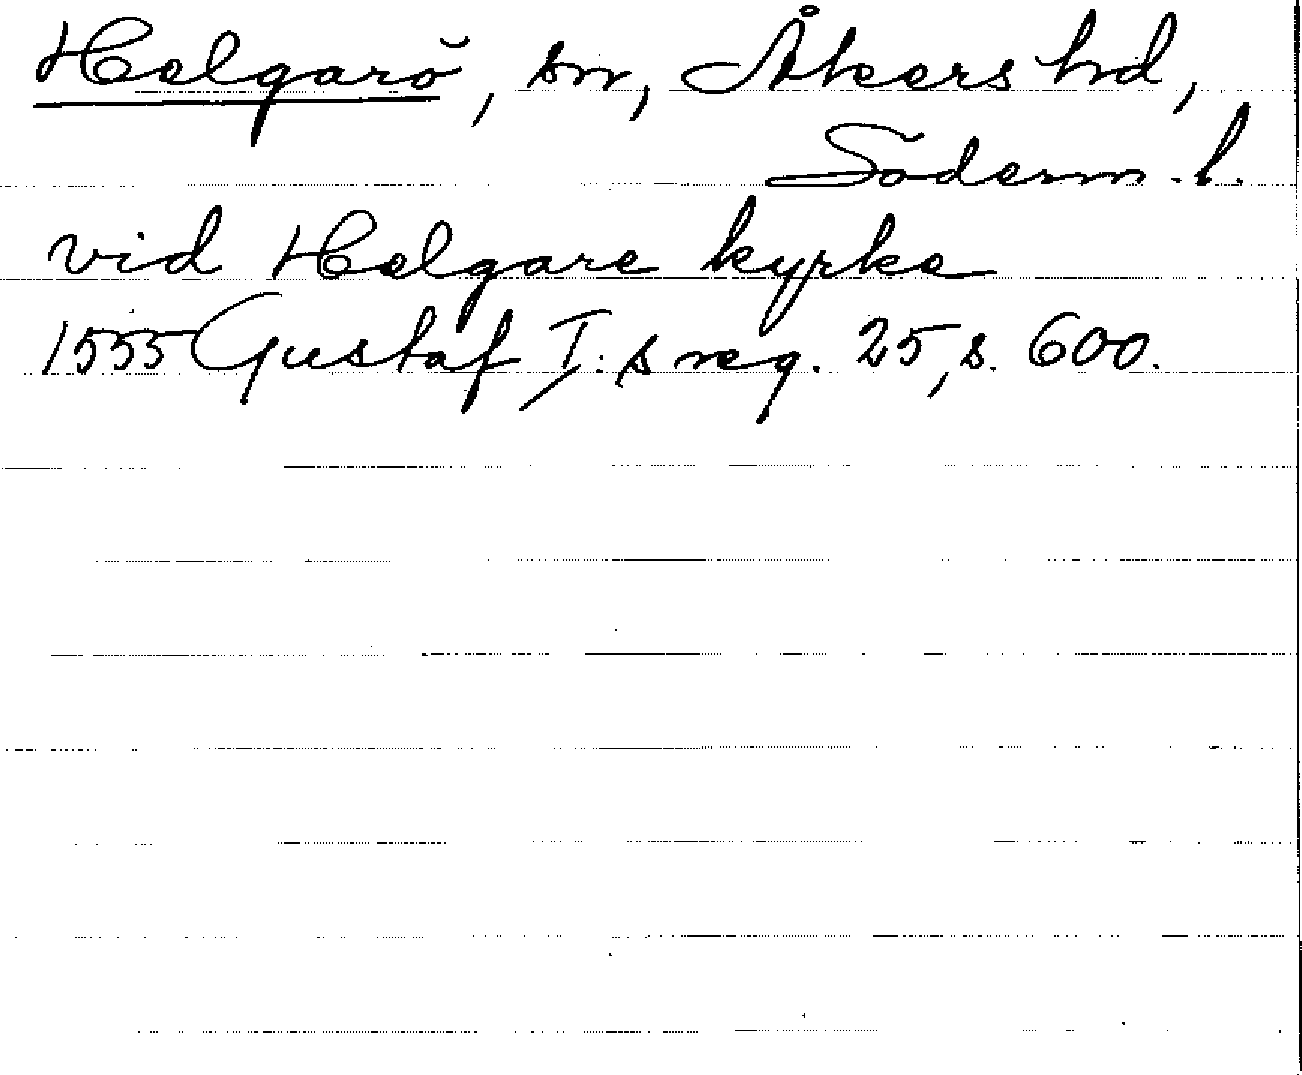 Helgarö, sn, Åkers hd,
Söderm. l.
vid Helgare kyrke
1555 Gustaf I:s reg. 25, s. 600.